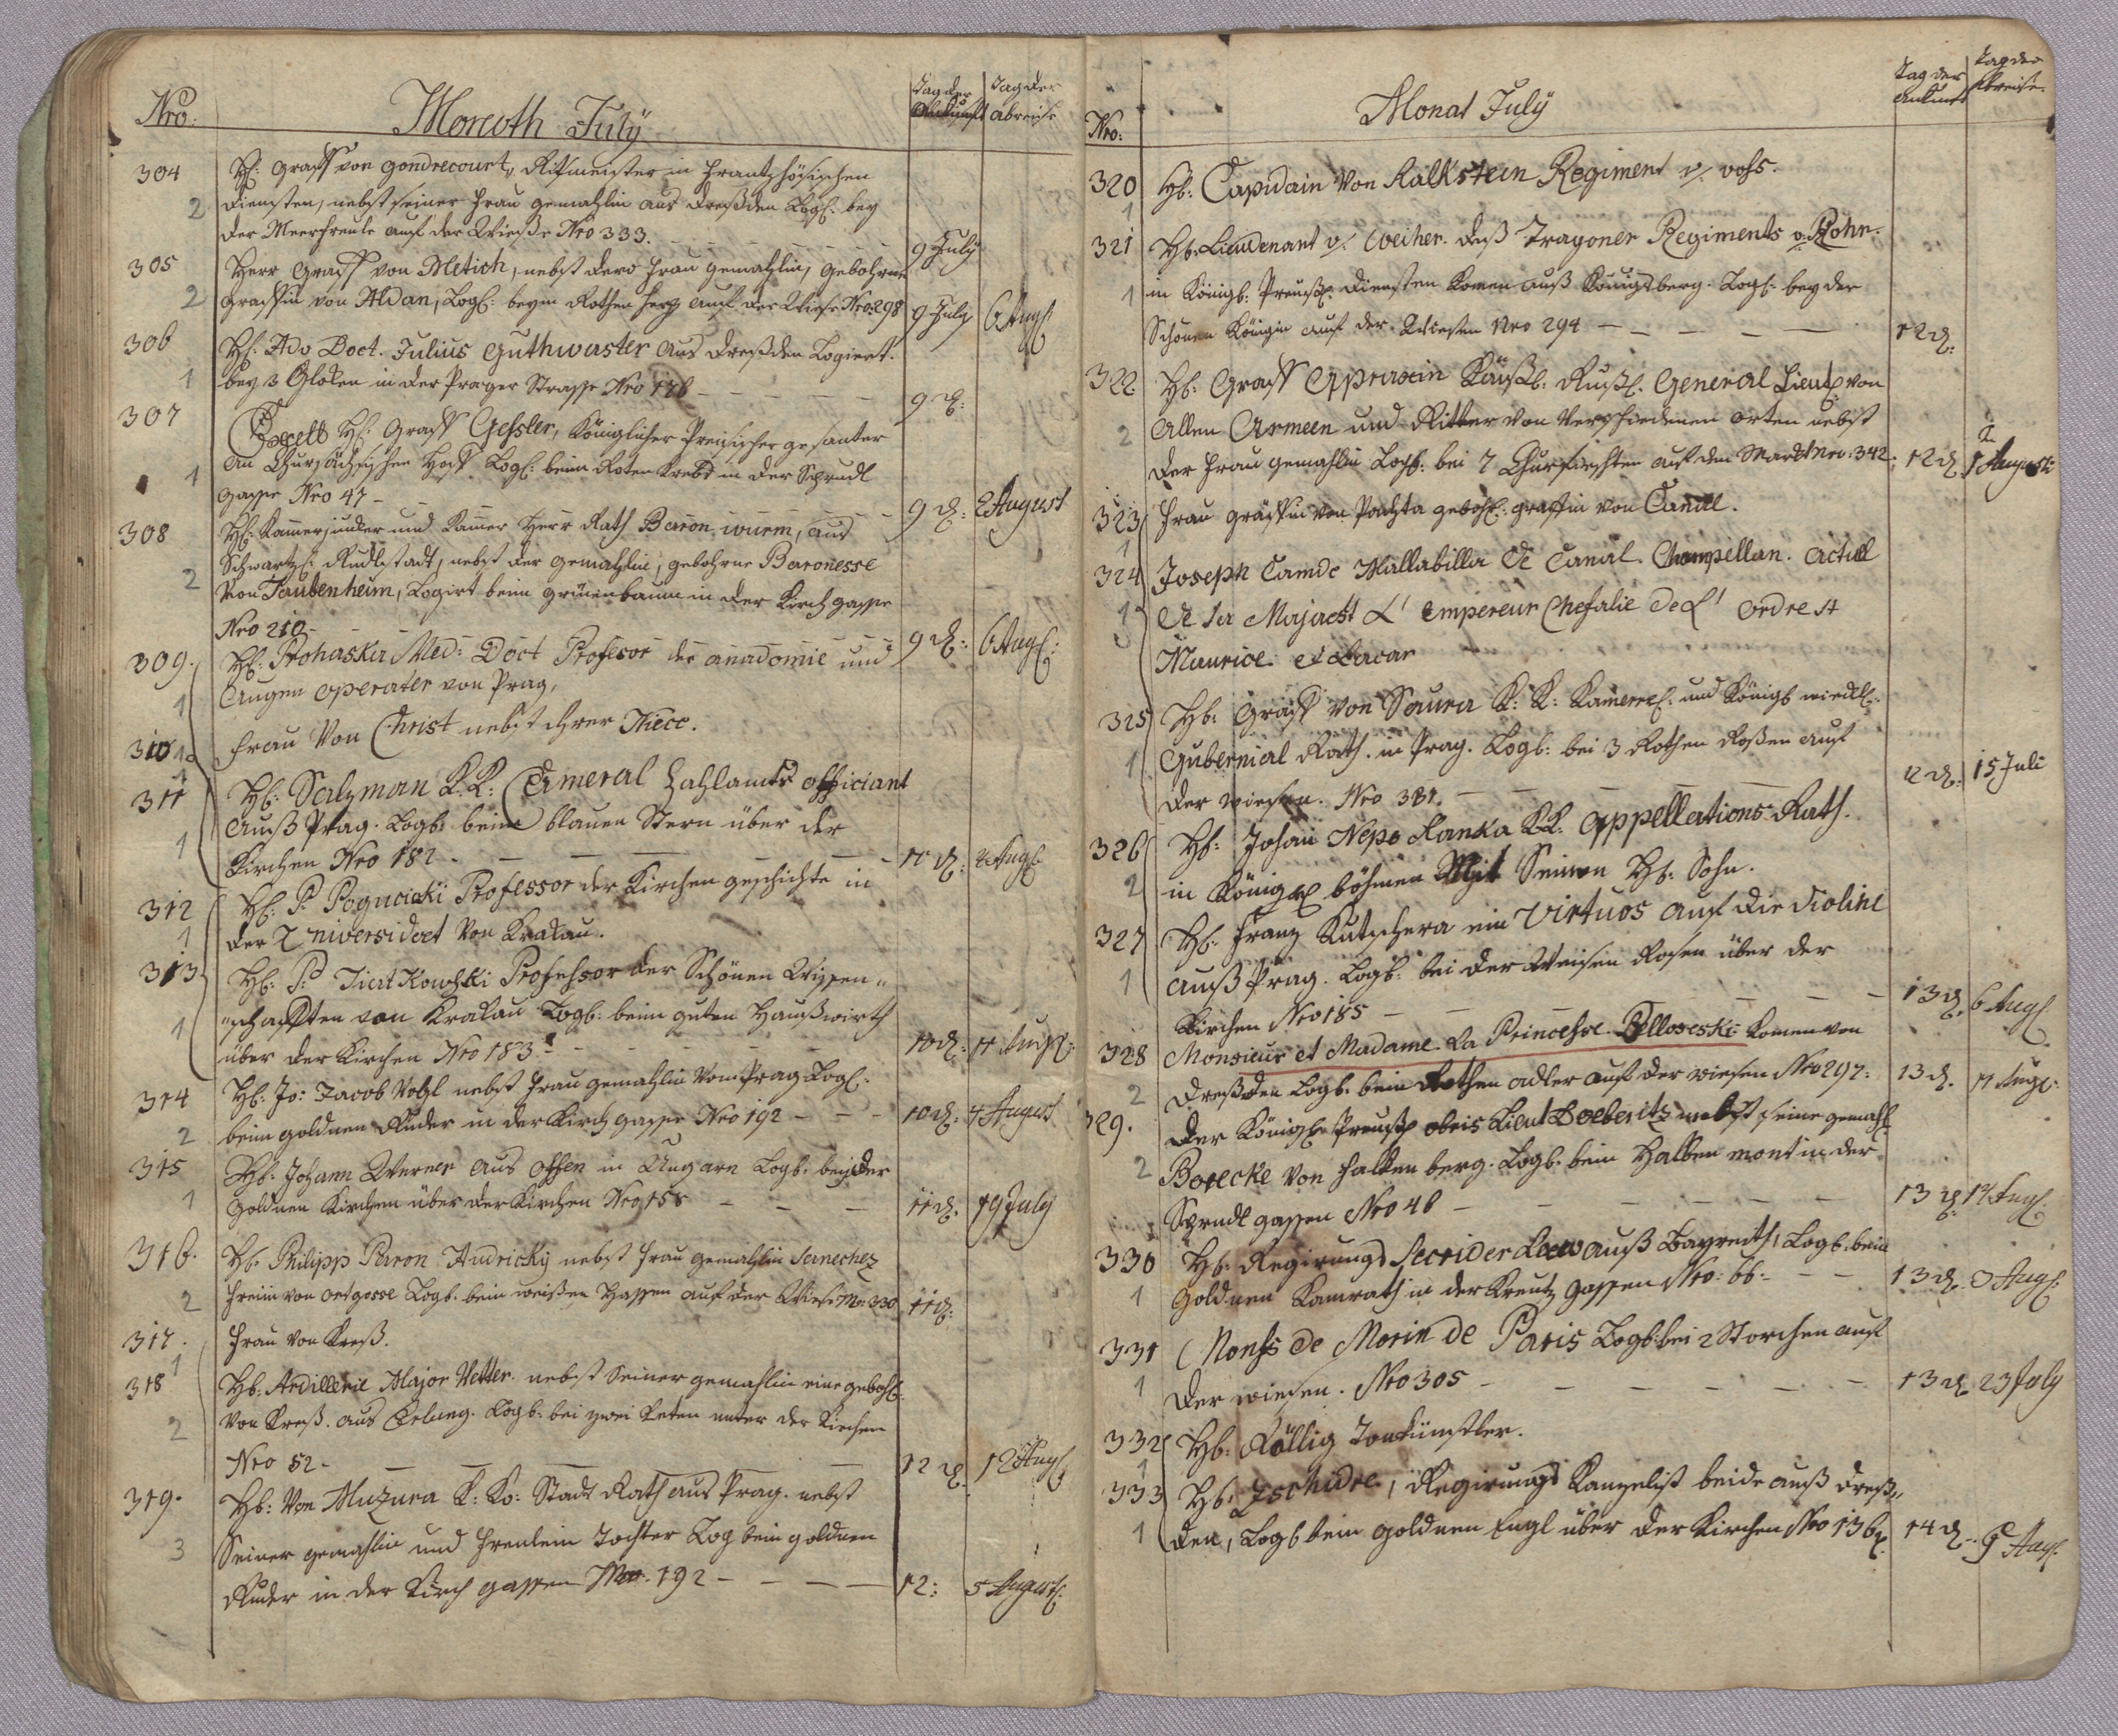 Nro:
Monath July
Tag der Ankunft
Tag der abreise
304 H: Graff von Gondrecourt, Ritmeister in Frantzhösischen
2 Diensten, nebst seiner Frau gemahlin aus Dreßden Log: bey
der Meerfreule auf der Wieße Nro 333. 9 July
305 Herr Graff von Metich, nebst dero Frau gemahlin, gebohrne
2 Graffin von Aldan, Log: beym Rothen Herz auf der Wiese Nro: 298 9 July 6 Aug:
306 H: Adv Doct. Julius Guthwaster aus Dreßden Logiert.
1 bey 3 Gloken in der Prager Strasse Nro 178 9 d:
307 Excell H: Graff Gessler, Königlicher Preissischer gesanter
1 an Chursächsischen Hoff Log: beim Roten Krebs in der Sprudl
gasse Nro 47 - 9 d: 2 August
308 H: Kamerjunker und Kamer Herr Rath Baron wurm, aus
Schwartz: Rudlstadt, nebst der gemahlin, gebohrne Baronesse
2 von Taubenheim, Logirt beim grünenbaum in der Kirch gasse
Nro 210- 9 d: 6 Aug:
309. H: Prohaska Med: Doct Profesor der anadomie und
1 Augen operater von Prag,
310 Frau Von Christ nebst ihrer Niece.
1
311 H: Salzman K.K: Cameral Zahlamts officiant
auß Prag. Log: beim blauen Stern über der
1 Kirchen Nro 182 - 10 d: 2 Aug:
312 H: P: Pogucicki Professor der Kirchen geschichte in
1 der Universidaet Von Krakau.
313 H: P: Tiertkowski Profehsor der Schönen Wissen„
„schafften von Krakau Log: beim guten Haußwirth
1 über der Kirchen Nro 183 - 10 d: 11 Aug:
314 H: Jo: Jacob Vogl nebst Frau gemahlin Vom Prag Log:
2 beim goldnen Ruder in der Kirch gasse Nro 192 - 10 d: 4 August
315 H: Johann Werner aus Offen in Ungarn Log: bei der
1 Goldnen Kirchen über der Kirchen Nro 158 - 11 d: 19 July
316. H: Philipp Baron Audricky nebst Frau gemahlin
2 Freiin von Log: beim weißen Hassen auf der Wiese Nro: 330 11 d:
317. Frau von Kreß.
1
318 H: Ardillerie Major Vetter. nebst Seiner gemahlin eine geboh:
2 von Kreß. aus Log: bei zwei unter der Kirchen
Nro 52 - 12 d: 12 Aug:
319. H: Von Muzura K: Ko: Stadt Rath aus Prag. nebst
3 Seiner gemahlin und Freulein Tochter Log beim goldnen
Ruder in der Kirch gassen Nro. 192 - 12: 5 August:
Nro:
Monat July
Tag der ankunft
Tag der Abreise
320 H: Capidain Von Kalkstein Regiment v: vohs.
1
321 H: Lieudenant v: Weiher. deß Tragoner Regiments v: Rohr.
1 in König: Preuß: Diensten komen auß Königsberg. Log: bey der
Schönen Königin auf der Wiesen Nro 294 - 12 d:
322 H: Graff Appraxin Käuß: Ruß: General Lieut: von
2 Allen Armeen und Ritter von Verschiedenen orten nebst
der Frau gemahlin Log: bei 7 Churfürsten auf den Markt Nro: 342. 12 d 1 August:
323 Frau gräffin von Pachta geboh: graffin von Canall.
1
324 Joseph Camde Mallabilla De Canal. Champellan. Actuel
1 de Sa Majaest L' Empereur Chefalie De L' Ordre st
Maurice. et Lazar
325 H: Graff Von Saura K: K: Kamerer: und König: wircl:
1 Gubernial Rath. in Prag. Log: bei 3 Rothen Roßen auf
der wiesen. Nro 331. - 12 d: 15 Juli
326 H: Johan Nepo Kanka K.K. Appellations-Rath.
2 in König: böhmen Mit Seinen H: Sohn.
327 H: Franz Kutschera ein Virtuos auf die Violine
1 auß Prag. Log: bei der Weisen Rosen über der
Kirchen Nro 185 - 13 d. 6 Aug:
328 Monsieur et Madame. La Princehse. Belloseski komen von
2 Dreßden Log: beim Rothen adler auf der wiesen Nro 297: 13 d. 11 Aug:
329. Der König: Preuß: obris Lieut Doeberitz nebst seine gemahl
2 Borecke Von Falkenberg. Log: beim Halben mont in der
Sprudl gassen Nro 48 - 13 d: 14 Aug:
330 H: Regirungs Secrider Loew auß Bayreith, Log: beim
1 Goldnen Kamrath in der Kreutz gassen Nro: 66: - 13 d. 3 Aug:
331 Monss De Morin de Paris Log: bei 2 Storchen auf
1 der wiesen. Nro 305 - 13 d. 23 July
332 H: Röllig Tonkünstler.
1
333 H: Zschidre, Regirungs Kanzelist beide auß Dreß„
1 den, Log: beim goldnen Engl über der Kirchen Nro 136. 14 d - 9 Aug: